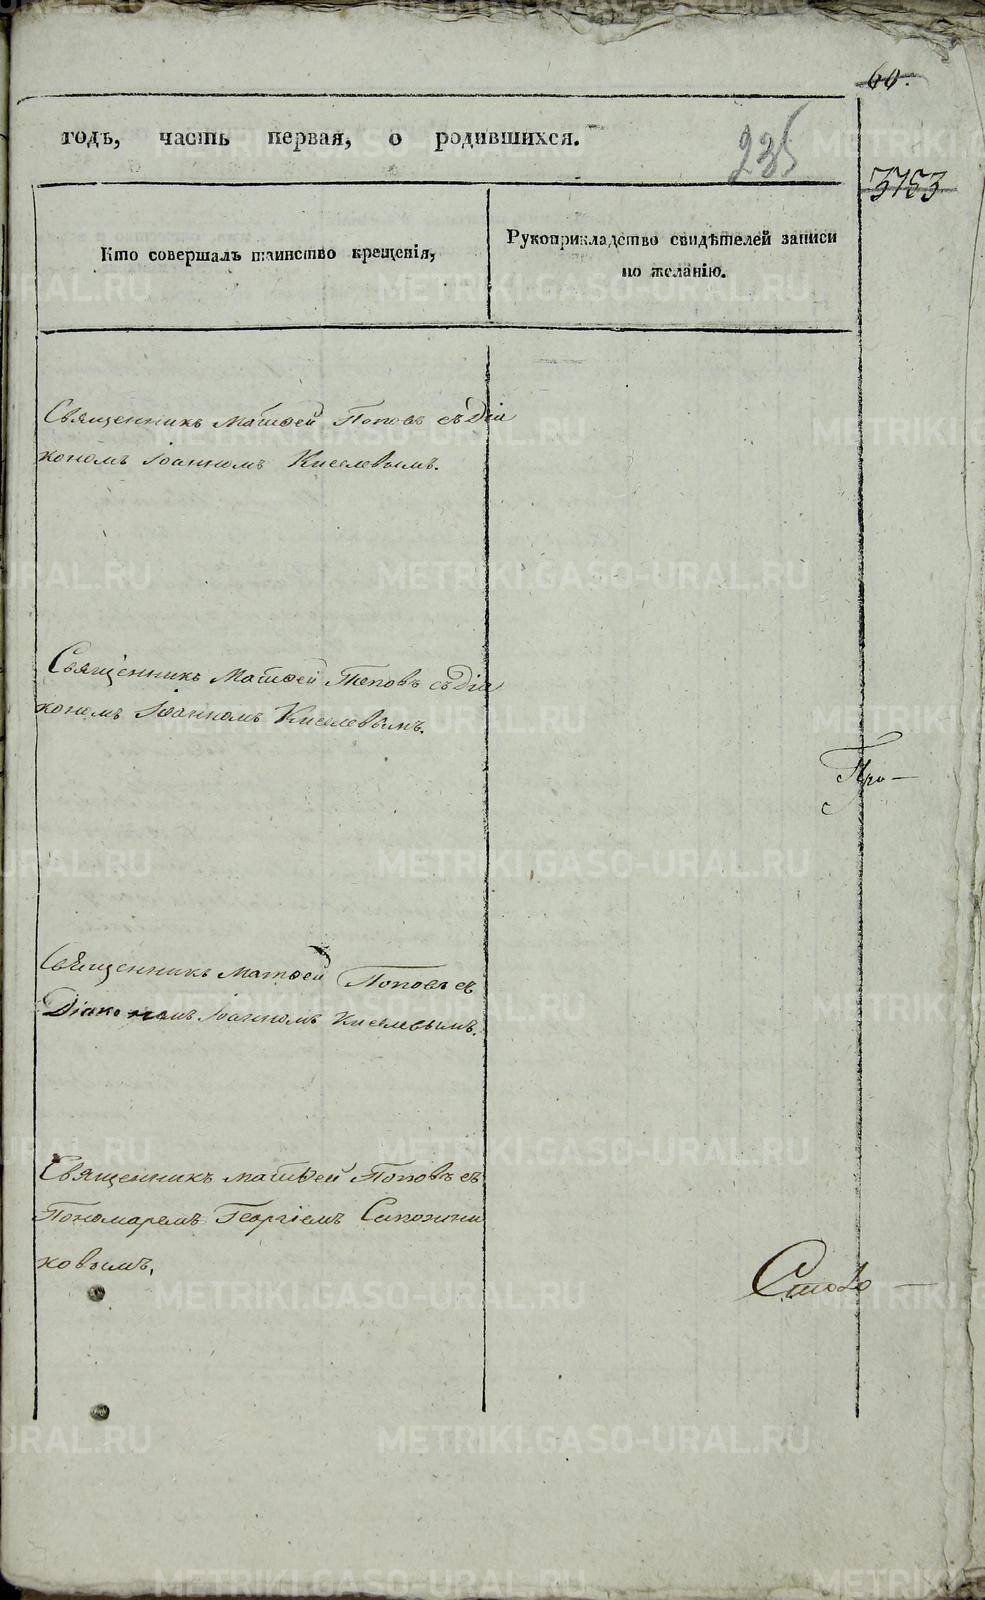 60.
годъ, часть первая, о родившихся.
235
3753
Кто совершалъ таинство крещенія,
Рукоприкладство свидѣтелей записи
по желанію.
Священникъ Матѳей Поповъ съ Діа
кономъ Іоанномъ Киселевымъ.
Священникъ Матѳей Поповъ съ Діа
кономъ Іоанномъ Киселевымъ.
Про-
Священникъ Матѳей Поповъ съ
Діакономъ Іоанномъ Киселевымъ.
Священникъ Матѳей Поповъ съ
Пономаремъ Георгіемъ Сапожни
ковымъ,
METRIKI.GASO-URAL.RU